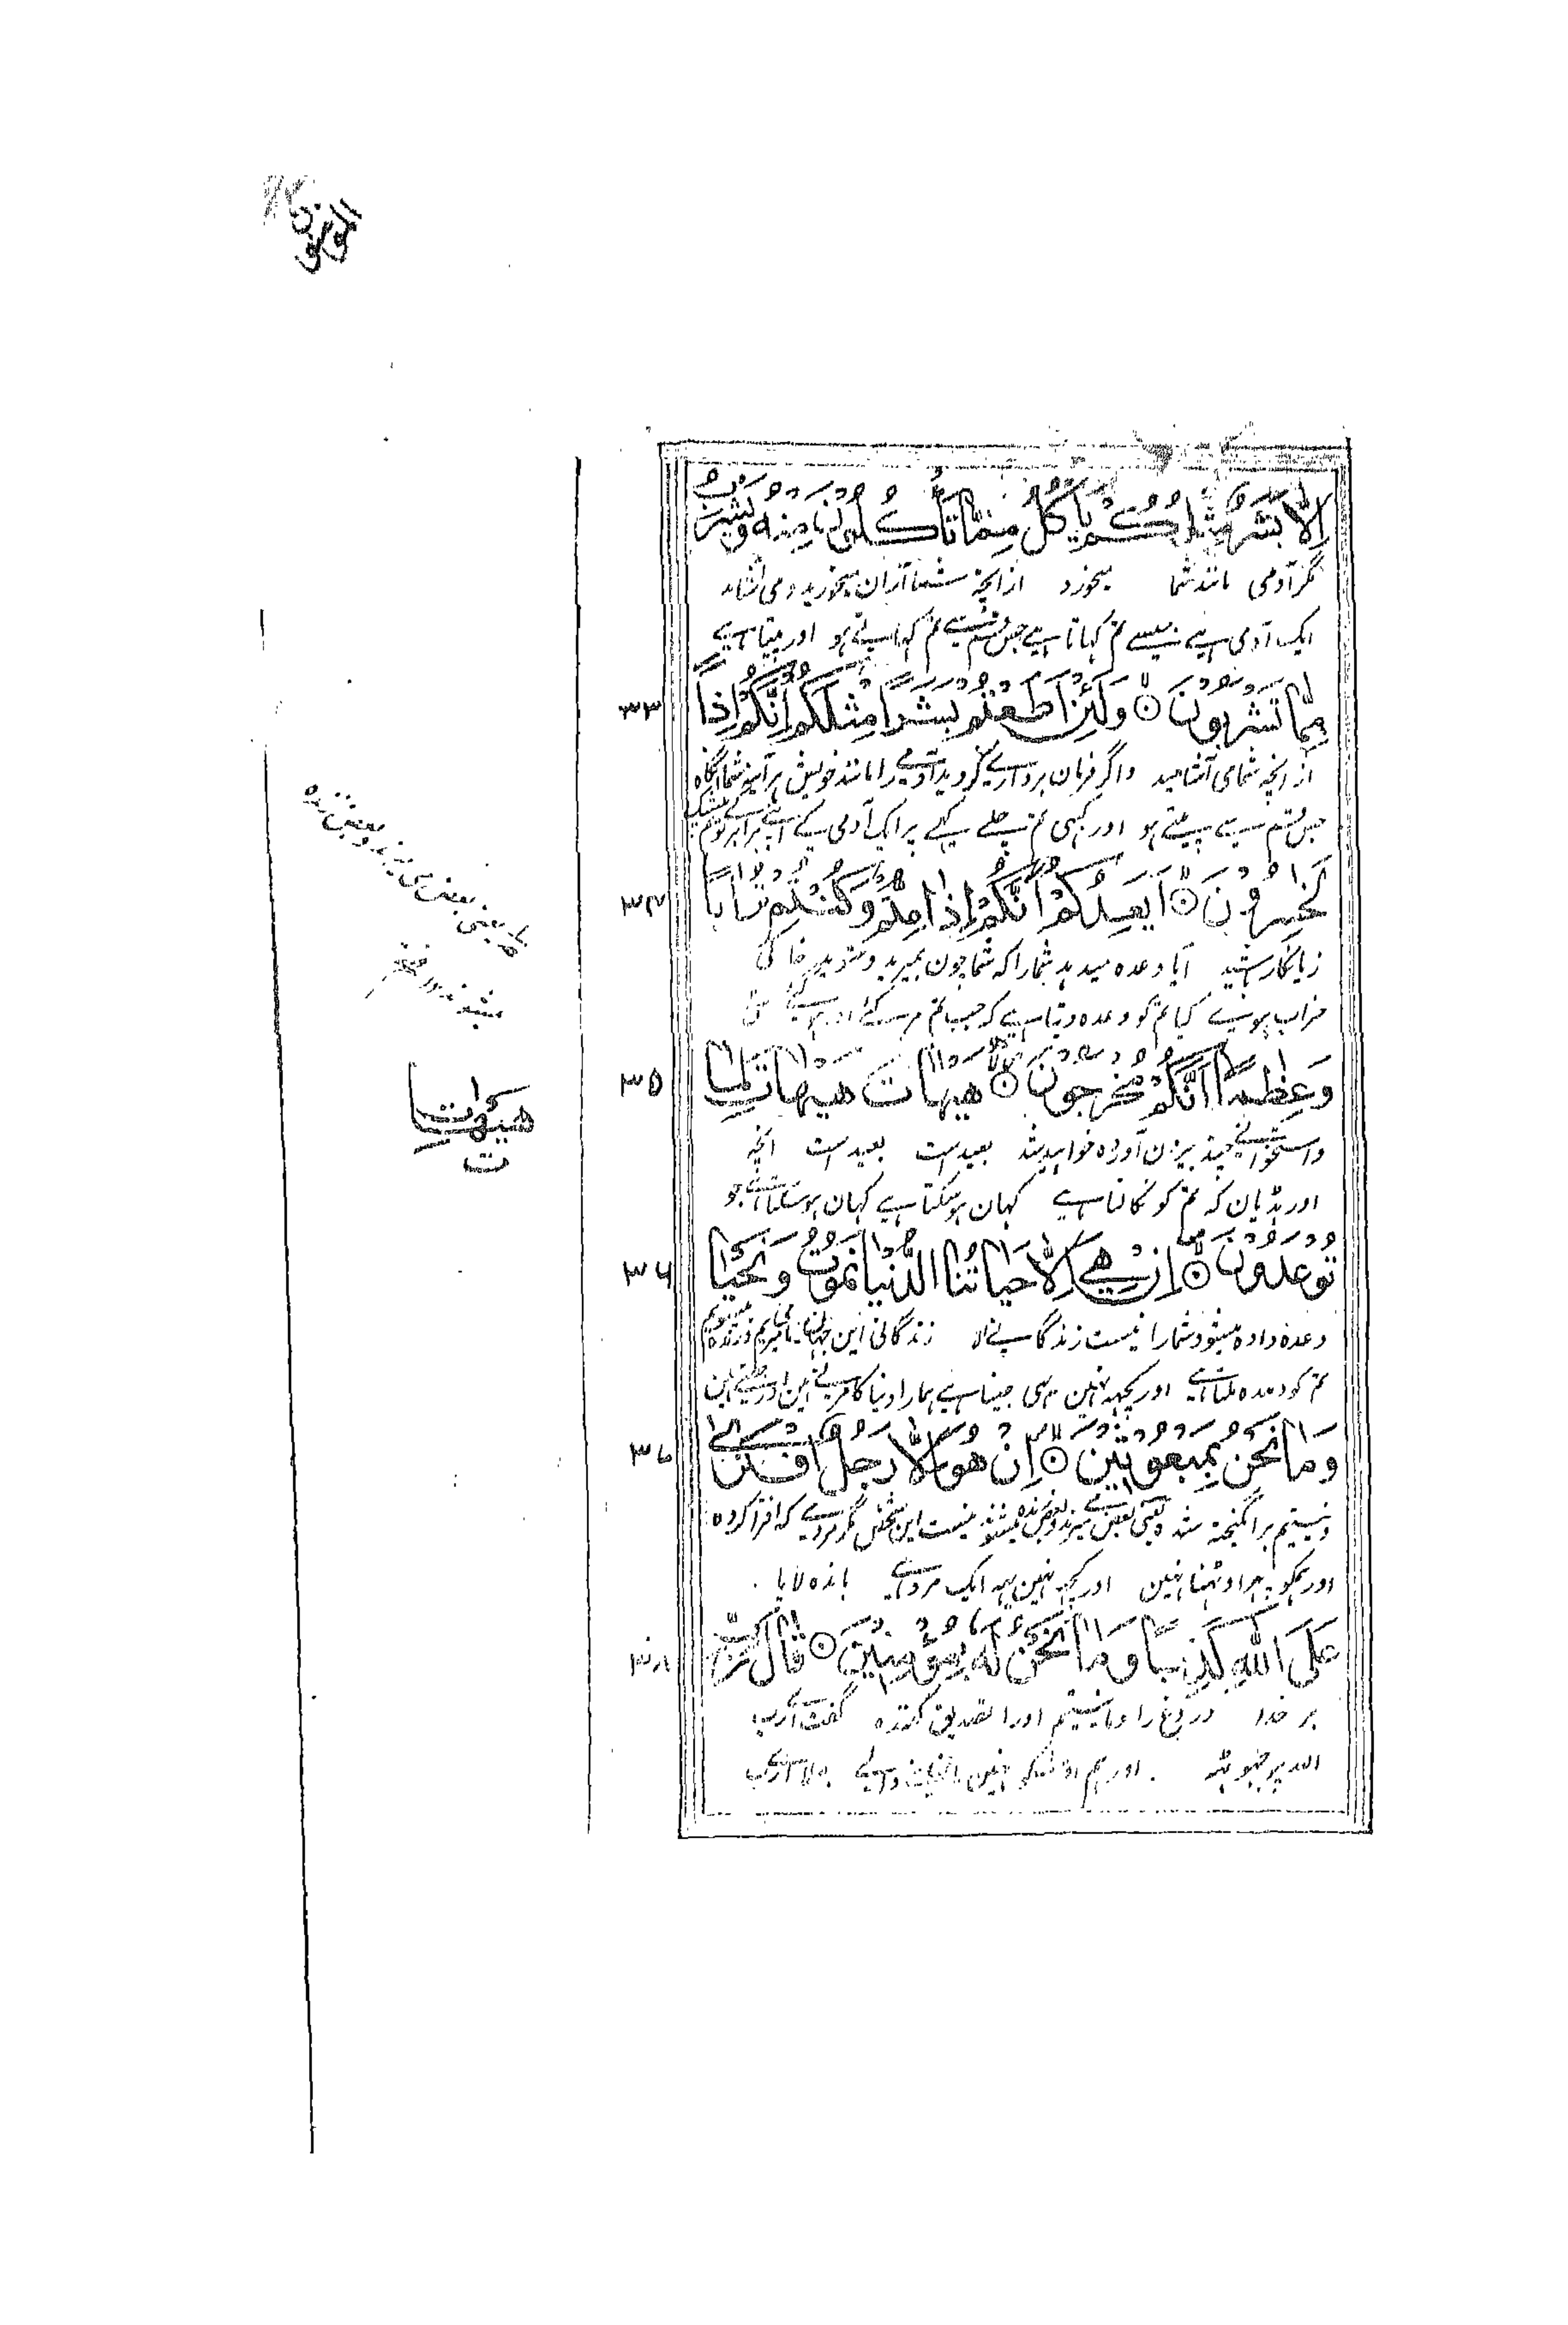 المؤمنون
اِلَّا بَشَرٌ مِّثْلُكُمْ يَأْكُلُ مِمَّا تَأْكُلُوْنَ مِنْهُ وَيَشْرَبُ
مگر آدمی مانند شما میخورد از انچه شما ازان میخورید و می آشامد
ایک آدمی ہے جیسے تم کہاتا ہے جس قسم سے تم کہاتے ہو اور پیتا ہے
مِمَّا تَشْرَبُوْنَ ۝ وَلَئِنْ اَطَعْتُمْ بَشَرًا مِّثْلَكُمْ اِنَّكُمْ اِذًا
۳۳
از انچه شما می آشامید و اگر فرمان برداری کردید آدمی را مانند خویش هر آئینه شما آنگاه
جس قسم سے پیتے ہو اور کہی تم چلے کہے پر ایک آدمی کے اپنے برابر کے تو تم بیشک
لَّخٰسِرُوْنَ ۝ اَيَعِدُكُمْ اَنَّكُمْ اِذَا مِتُّمْ وَكُنْتُمْ تُرَابًا
۳۴
زیانکار باشید آیا وعده میدهد شما را که شما چون بمیرید و شوید خاکی
خراب ہوئے کیا تم کو وعدہ دیتا ہے کہ جب تم مر گئے اور ہو گئے
وَّعِظَامًا اَنَّكُمْ مُّخْرَجُوْنَ ۝ هَيْهَاتَ هَيْهَاتَ لِمَا
۳۵
و استخوانے چند بیرون آورده خواهید شد بعید است بعید است انچه
اور ہڈیان کہ تم کو نکالنا ہے کہان ہو سکتا ہے کہان ہو سکتا ہے جو
تُوْعَدُوْنَ ۝ اِنْ هِيَ اِلَّا حَيَاتُنَا الدُّنْيَا نَمُوْتُ وَنَحْيَا
۳۶
وعده داده میشود شما را نیست زندگانے الا زندگانی این جهان ما میمیریم و زنده میشویم
تم کو وعدہ ملتا ہے اور کچہہ نہین یہی جینا ہے ہمارا دنیا کا مرتے ہین اور جیتے ہین
وَمَا نَحْنُ بِمَبْعُوْثِيْنَ ۝ اِنْ هُوَ اِلَّا رَجُلُ افْتَرٰى
۳۷
و نیستیم برانگیخته شده یعنی بعضے میرند و بعض زنده میشوند نیست این شخص مگر مردے که افترا کرده
اور ہمکو پہر اوٹہنا نہین اور کچہہ نہین یہہ ایک مرد ہے باندہ لایا
عَلَى اللّٰهِ كَذِبًا وَّمَا نَحْنُ لَهٗ بِمُؤْمِنِيْنَ ۝ قَالَ رَبِّ
۳۸
بر خدا دروغ را و ما نیستیم اورا تصدیق کننده گفت اے رب
اللہ پر جہوٹہہ اور ہم اوسکو نہین ماننے والے بولا اے رب
یعنی بعض می میرند و بعض زنده
میشوند
هَيْهَاتِ
ت